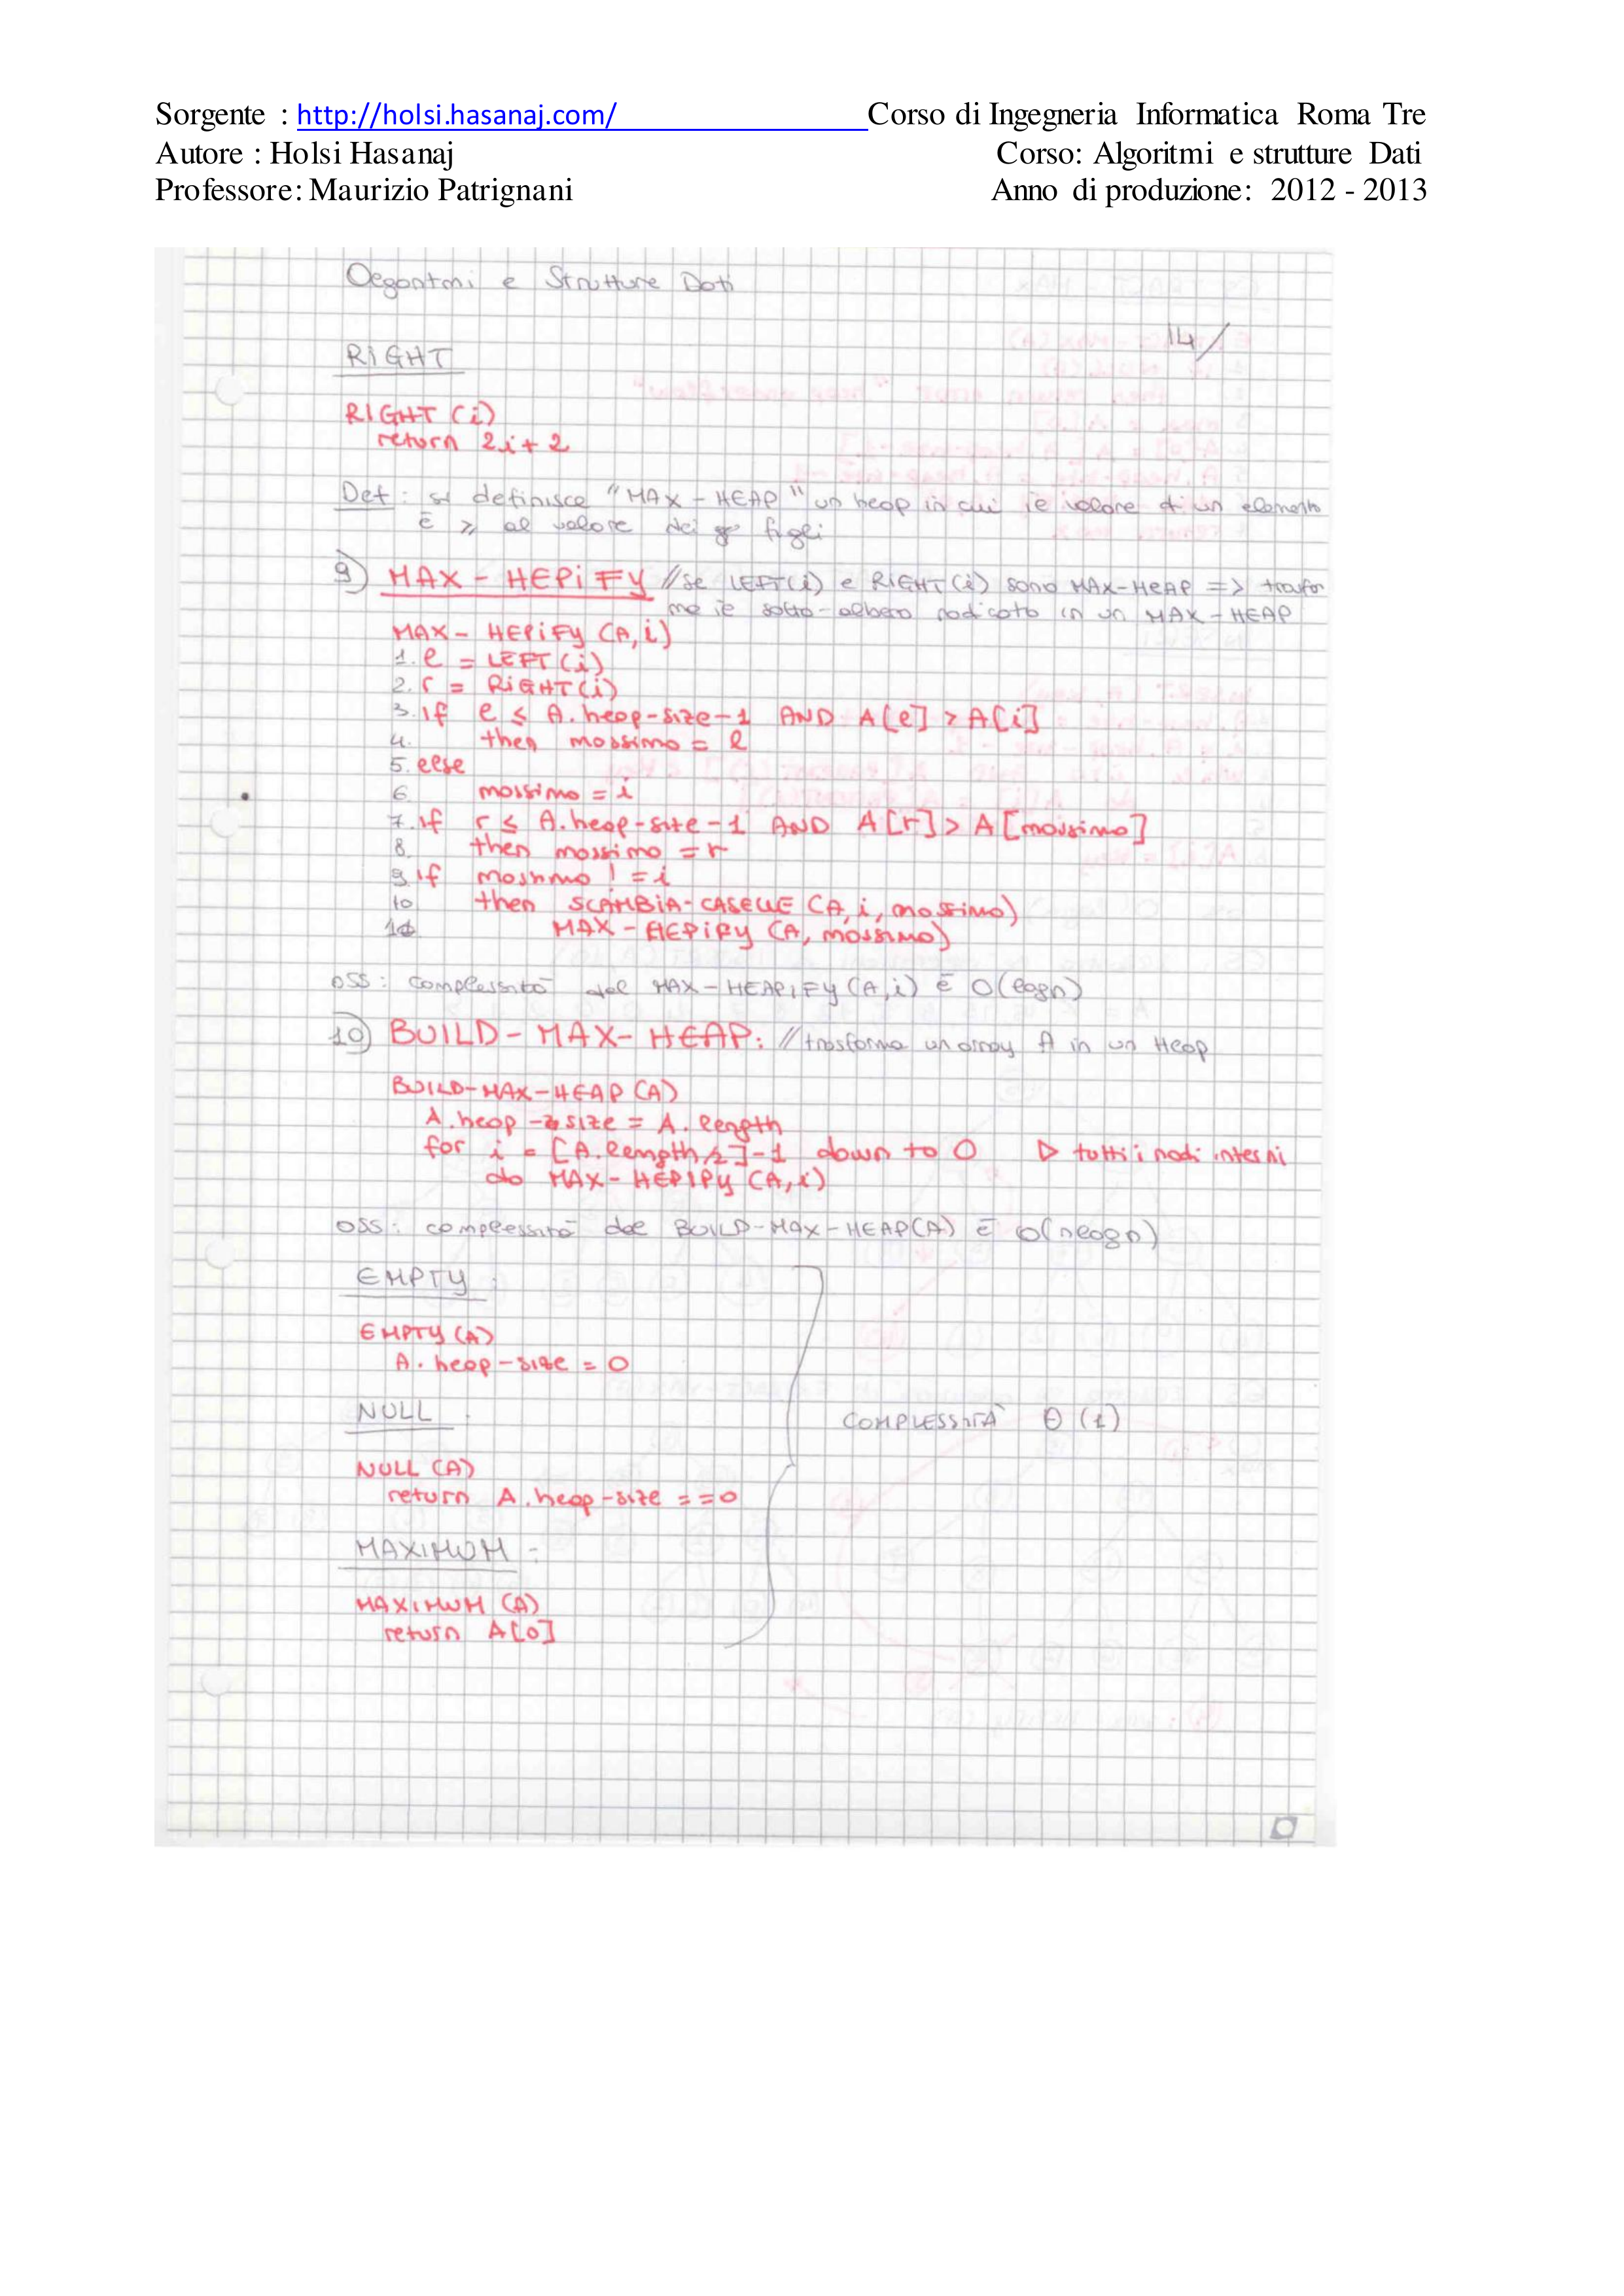 Sorgente : http://holsi.hasanaj.com/ Corso di Ingegneria Informatica Roma Tre
Autore : Holsi Hasanaj Corso: Algoritmi e strutture Dati
Professore: Maurizio Patrignani Anno di produzione: 2012 - 2013
Algoritmi e Strutture Dati
14/
RIGHT
RIGHT (i)
return 2i + 2
Def : si definisce "MAX - HEAP" un heap in cui il valore di un elemento
è ≥ al valore dei figli
9) MAX - HEPIFY //se LEFT(i) e RIGHT(i) sono MAX-HEAP => trasfor
ma il sotto-albero radicato in un MAX-HEAP
MAX - HEPIFY (A, i)
1. l = LEFT (i)
2. r = RIGHT (i)
3. if l ≤ A.heap-size-1 AND A[l] > A[i]
4. then massimo = l
5. else
6 massimo = i
7. if r ≤ A.heap-size-1 AND A[r] > A[massimo]
8. then massimo = r
9. if massimo != i
10 then SCAMBIA-CASELLE (A, i, massimo)
11 MAX-HEPIFY (A, massimo)
OSS: complessità del MAX-HEAPIFY (A, i) è O(logn)
10) BUILD - MAX - HEAP: //trasforma un array A in un Heap
BUILD-MAX-HEAP (A)
A.heap-size = A.length
for i = [A.length/2]-1 down to 0 ▷ tutti i nodi interni
do MAX-HEPIFY (A, i)
OSS: complessità del BUILD-MAX-HEAP(A) è O(nlogn)
EMPTY :
EMPTY (A)
A.heap-size = 0
NULL :
COMPLESSITÀ Θ (1)
NULL (A)
return A.heap-size == 0
MAXIMUM :
MAXIMUM (A)
return A[0]